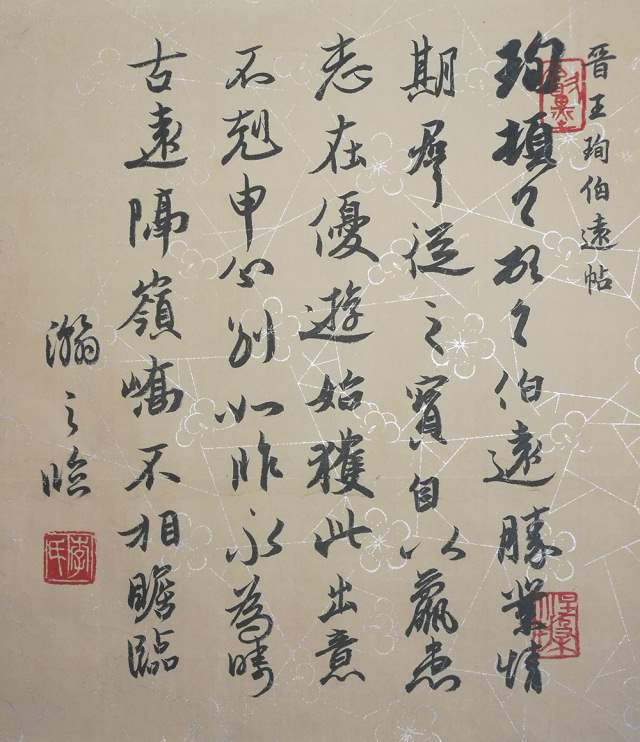 晉王珣伯遠帖
珣頓々首々伯遠勝業情
期群從之寶自以羸患
志在優遊始獲此出意
不剋申分別如昨永為疇
古遠隔嶺嶠不相瞻臨
瀚之臨